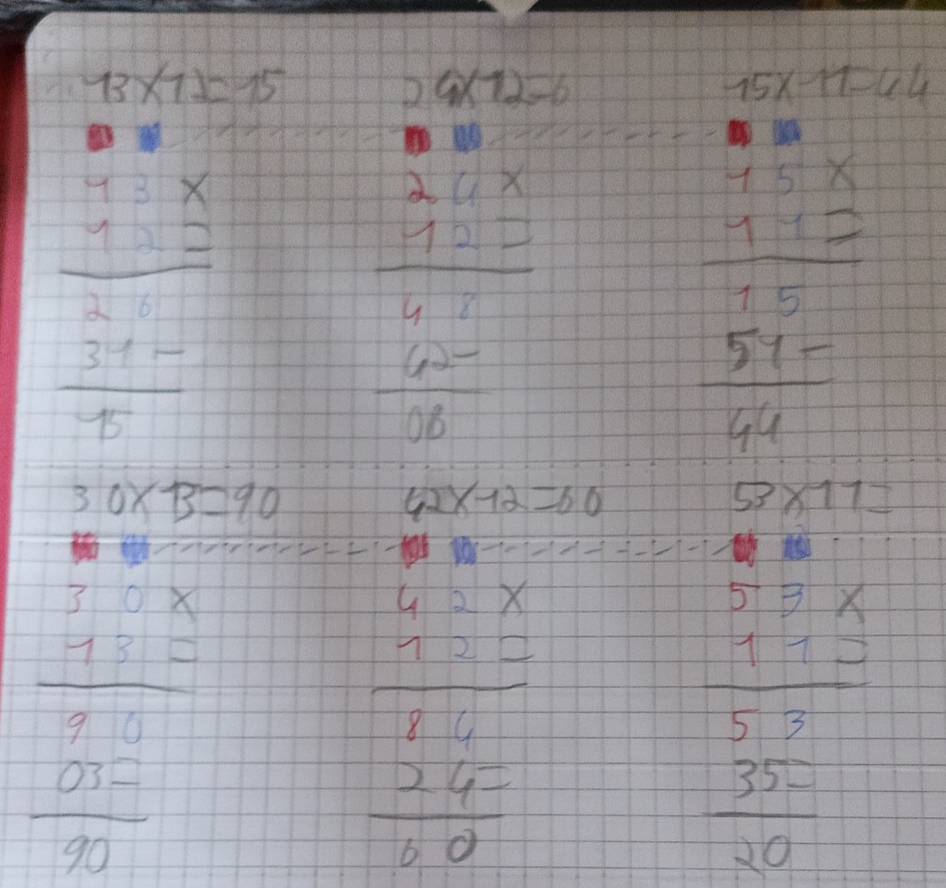 13x12=15 24x12=6 15x11=44
1 3 x 2 4 x 1 5 x
1 2 = 1 2 = 1 1 =
2 6 4 8 1 5
31- 42- 51-
15 06 44
30x13=90 42x12=60 53x11=
3 0 x 4 2 x 5 3 x
1 3 = 1 2 = 1 1 =
9 0 8 4 5 3
03= 24= 35=
90 60 20